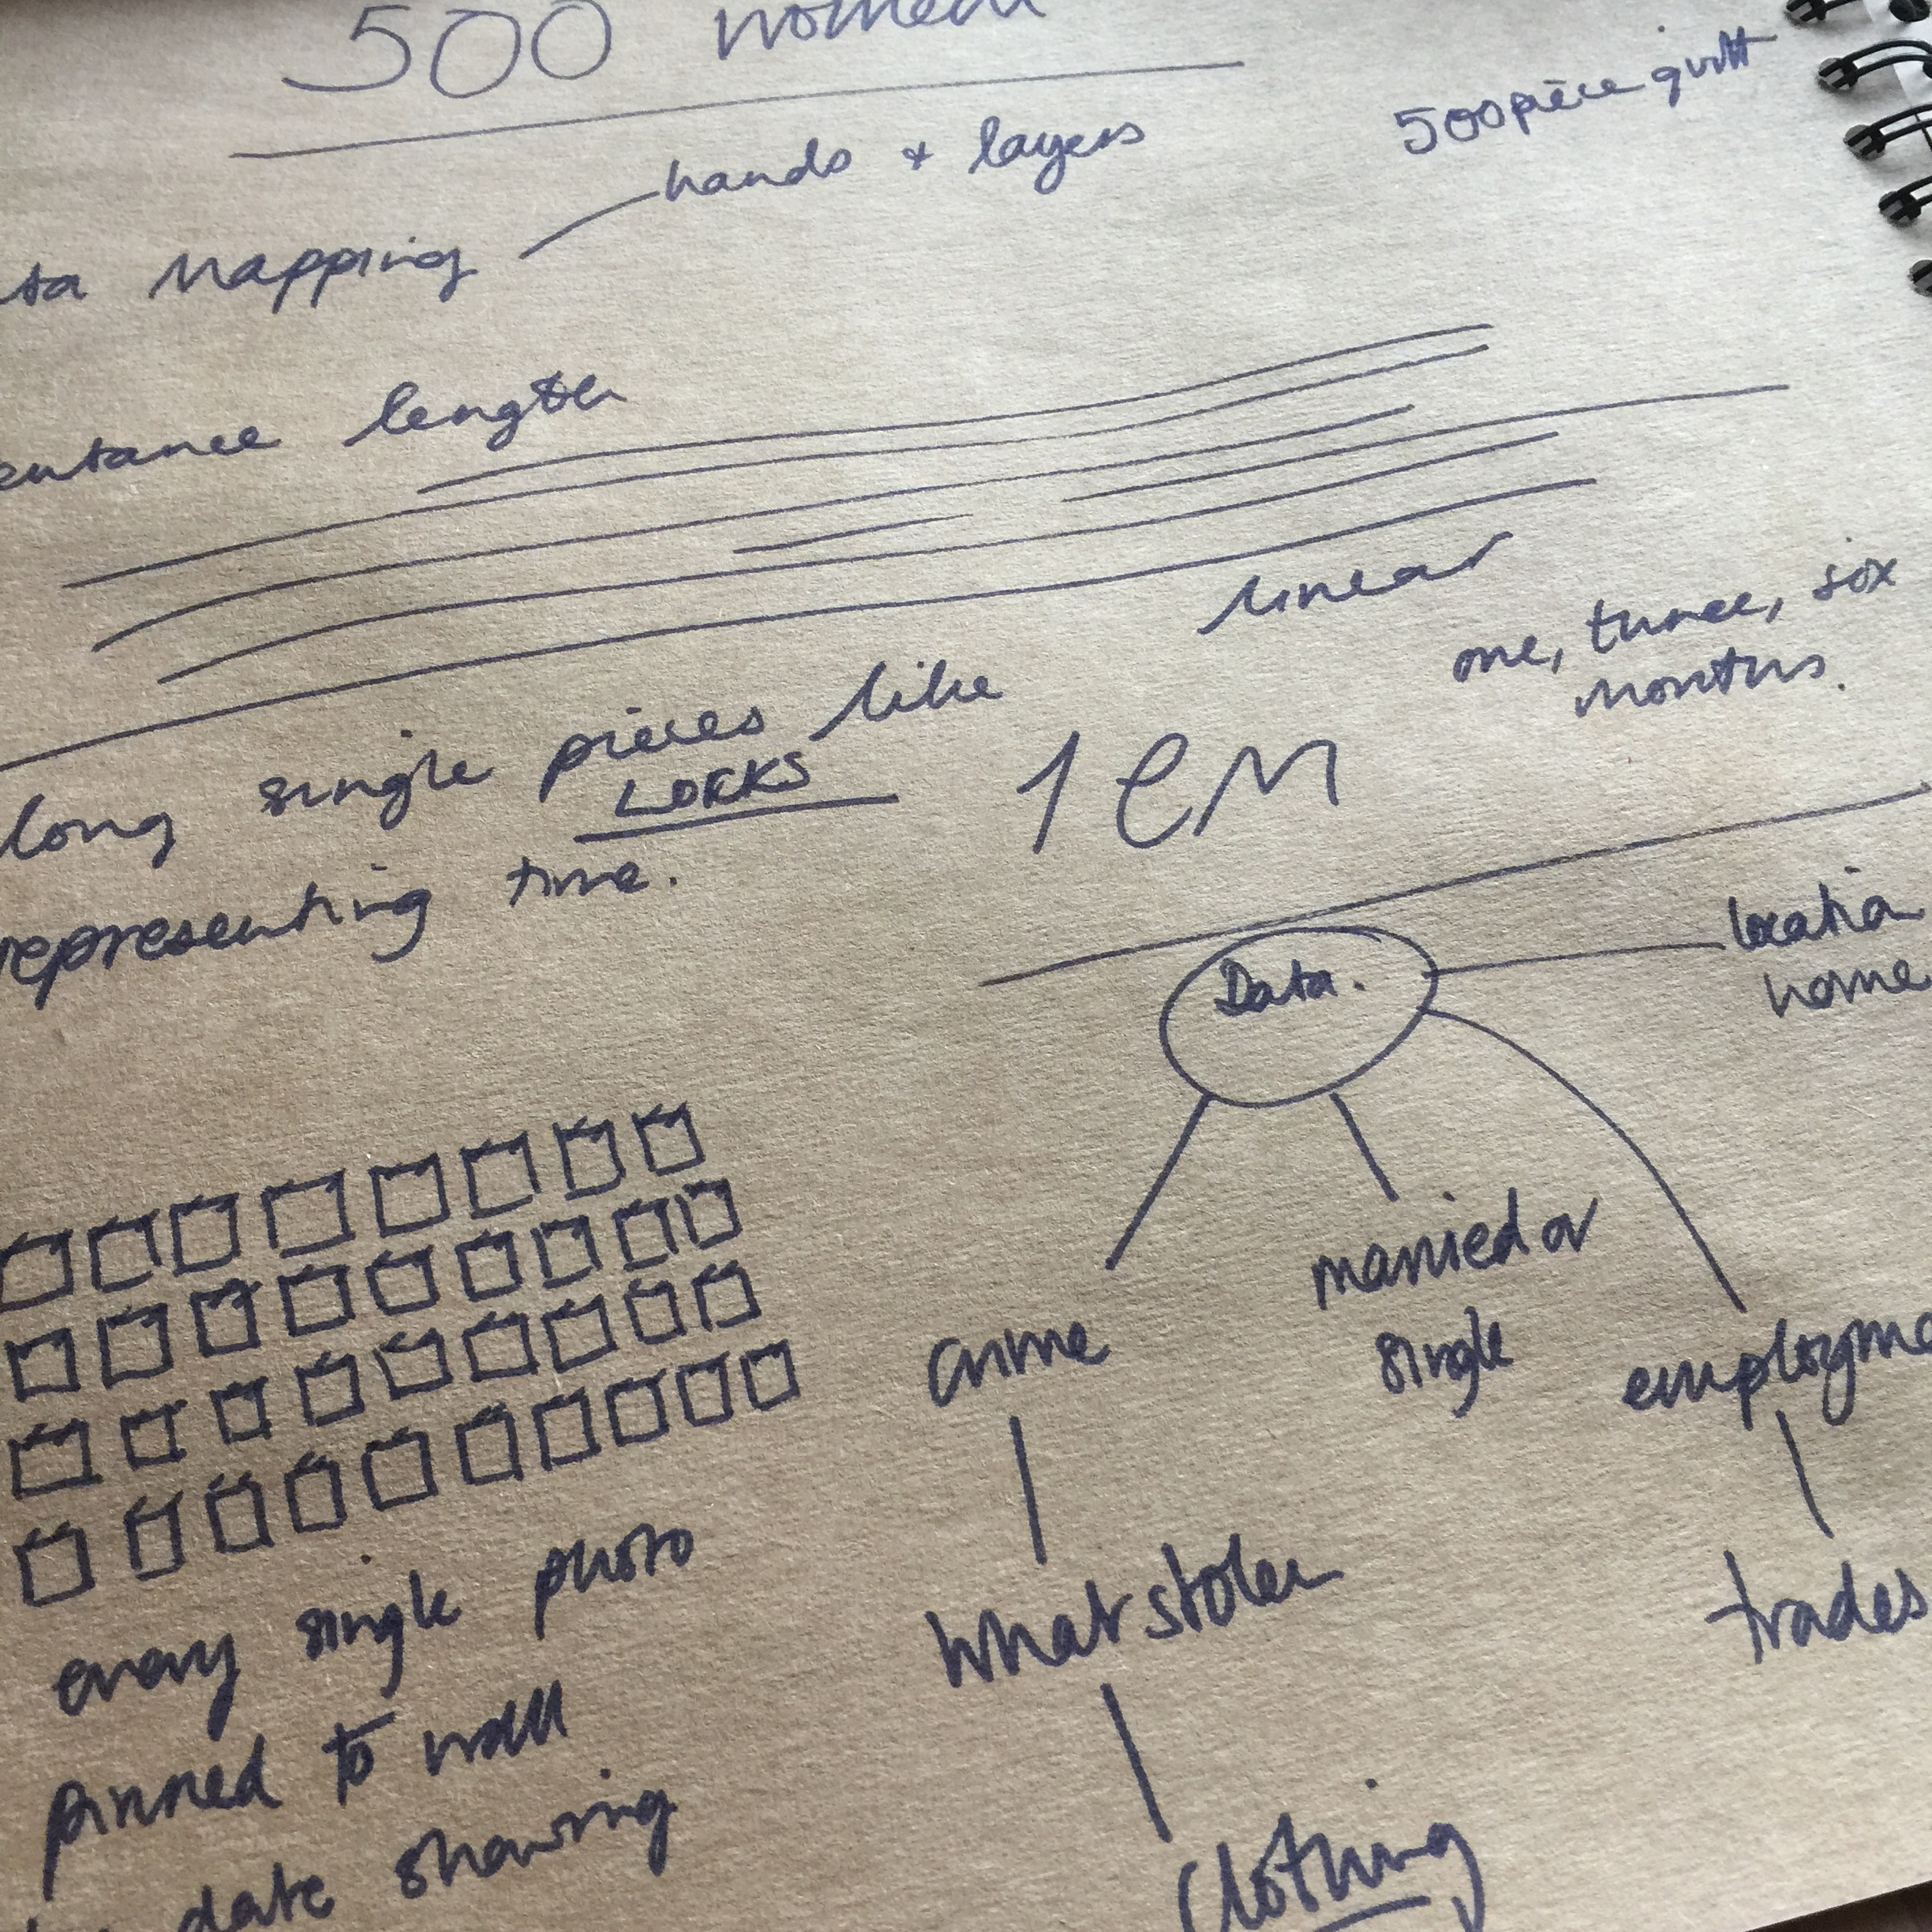 500 women
500 piece quilt
hands + layers
ta Mapping
entance length
linear
one, three, six
months.
long single pieces like
LOCKS
representing time.
1 CM
Data.
location
home
crime
married or
single
employme
What stolen
trades
Clothing
every single photo
pinned to wall
date showing